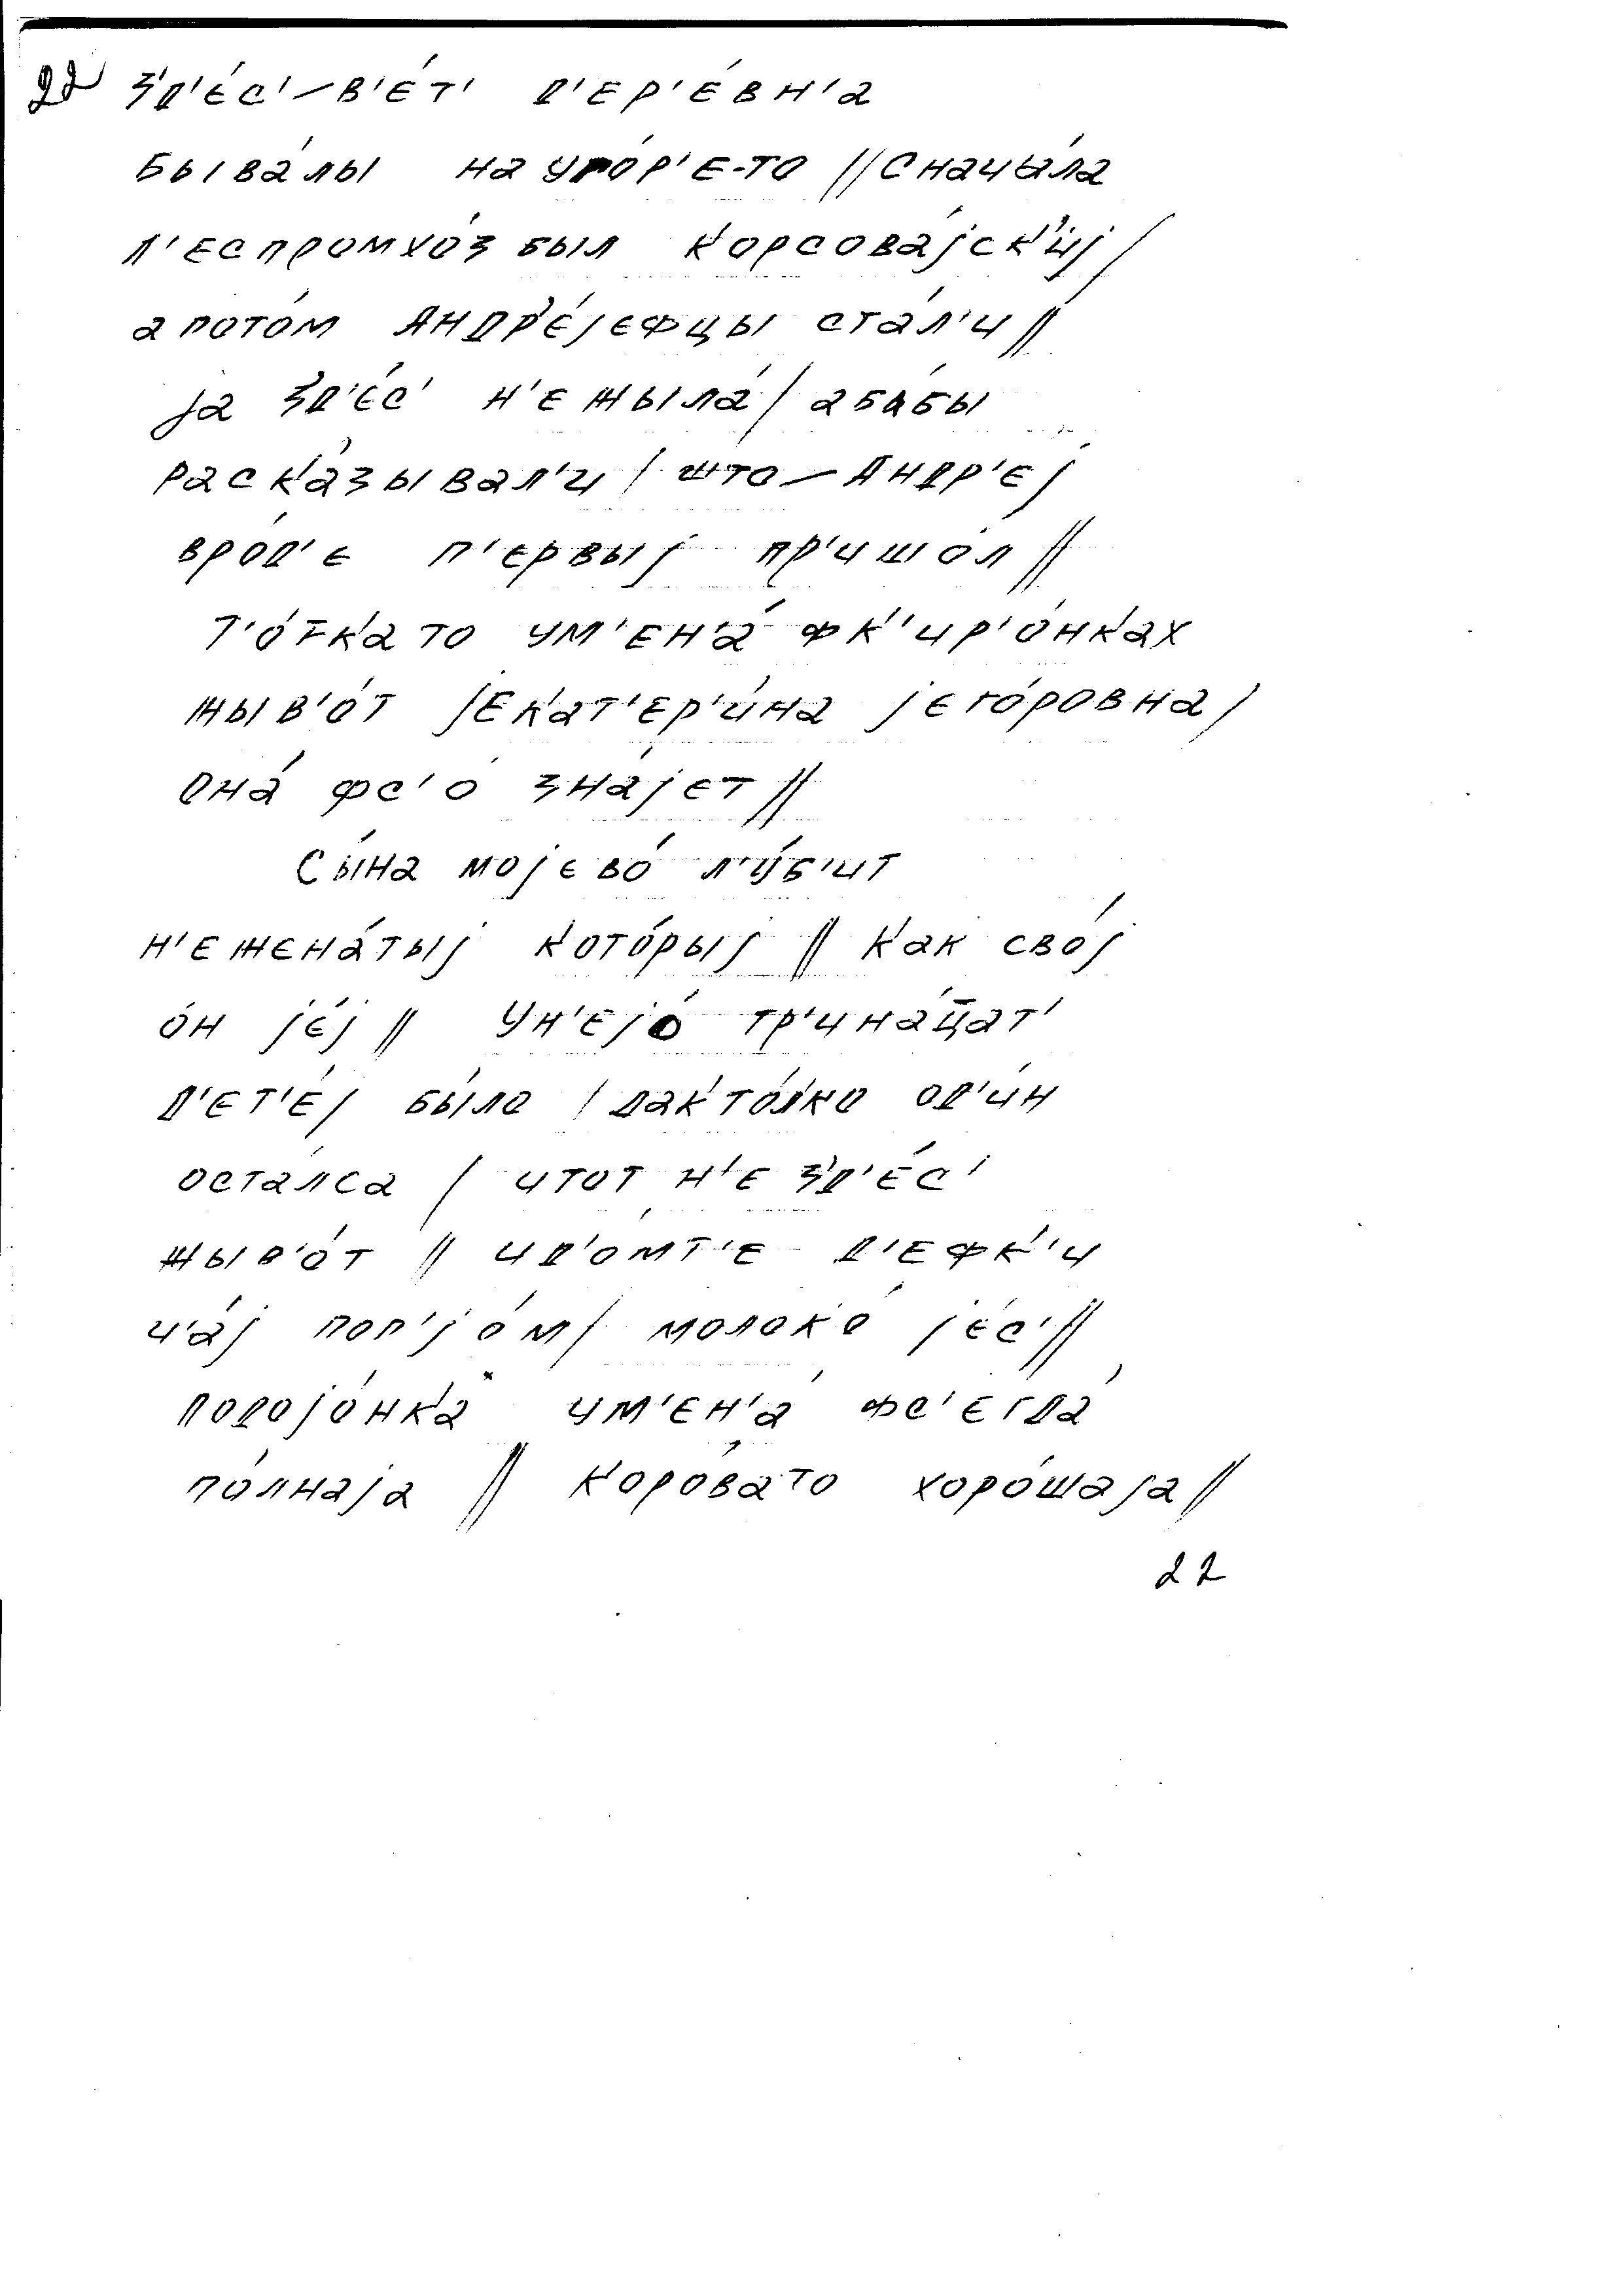 22 з'д'е́с'–в'е́т' д'ер'е́вн'а
быва́лы на уго́р'е-то // Снача́ла
л'еспромхо́з был Корсова́jск'иj /
а пото́м Андр'е́jефцы ста́л'и //
jа з'д'е́с' н'е жыла́ / а ба́бы
раска́зывал'и / што – Андр'е́j
вро́д'е п'е́рвыj пр'ишо́л //
т'о́т̄ка то ум'ен'а́ ф К'ир'о́нках
жыв'о́т jекат'ер'и́на jего́ровна /
она́ фс'о́ зна́jет //
Сы́на моjево́ л'у́б'ит
н'ежена́тыj кото́рыj // как сво́j
о́н jе́j // ун'ejо́ тр'ина́ц̄ат'
д'ет'е́j бы́ло / дак то́лко од'и́н
оста́лса / и тот н'е з'д'е́с'
жыв'о́т // ид'о́мт'е д'е́фк'и
ч'а́j поп'jо́м / молоко́ jе́с' //
подоjо́нка ум'ен'а́ фс'егда́
по́лнаjа // коро́вато хоро́шаjа //
22